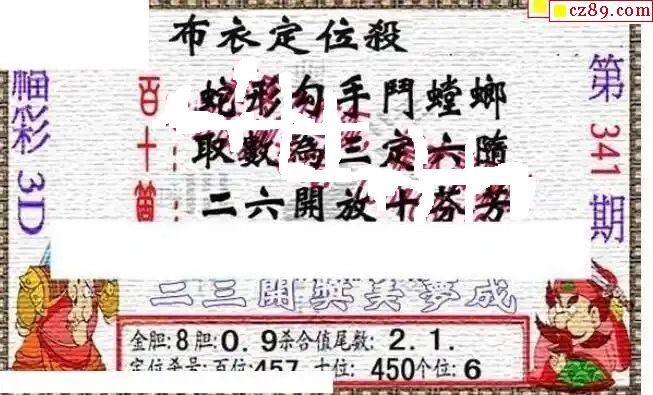 cz89.com
布衣定位殺
福彩3D
第341期
百：蛇形勾手鬥螳螂
十：取數為三定六隨
二六開放十芬芳
二三開獎美夢成
金胆:8胆:0.9杀合值尾数:2.1.
定位杀号:百位:457十位:450个位:6